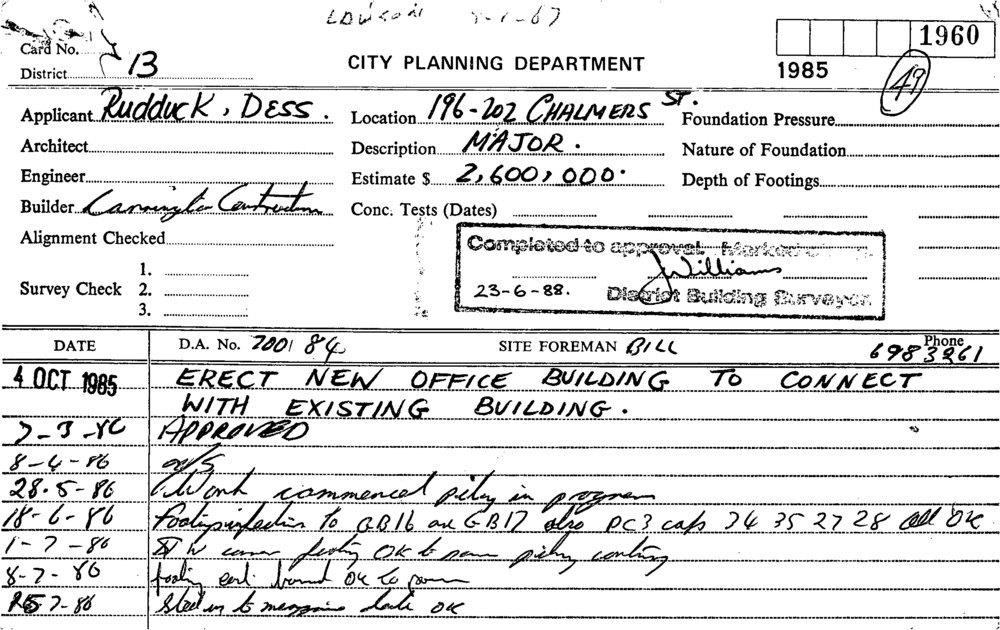 LAWSON
Card No.
District 13
CITY PLANNING DEPARTMENT
1960
1985
49
Applicant Rudduck, DESS.
Location 196-202 CHALMERS ST.
Foundation Pressure
Architect
Description MAJOR.
Nature of Foundation
Engineer
Estimate $ 2,600,000.
Depth of Footings
Builder Construction
Conc. Tests (Dates)
Alignment Checked
Completed to approval.
Survey Check
1.
2.
3.
Williams
23-6-88.
District Building Surveyor.
DATE
D.A. No. 700/84
SITE FOREMAN BILL
Phone 6983261
4 OCT 1985 ERECT NEW OFFICE BUILDING TO CONNECT
WITH EXISTING BUILDING.
7-3-86 APPROVED
8-4-86 N/S
28-5-86 Work commenced piling in progress
18-6-86 Footing inspection to GB16 GB17 also PC3 caps 34 35 27 28 all OK
1-7-86 S W corner footing OK to pour piling
8-7-86 footing OK to pour
7-86 Steel in to OK